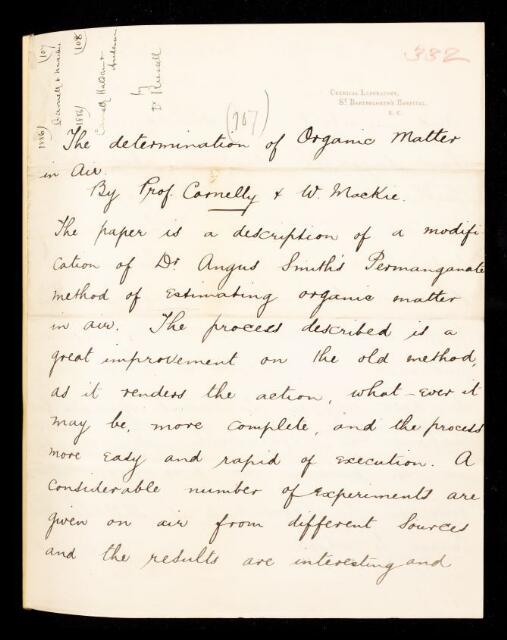 (107
Carnelly & Mackie
(1886)
(108
Carnelly Haldane &
Anderson
(1886)
by
Dr Russell
332
Chemical Laboratory,
St Bartholomew's Hospital,
E.C.
(107)
The determination of Organic Matter
in Air.
By Prof. Carnelly & W. Mackie.
The paper is a description of a modifi
cation of Dr Angus Smith's Permanganate
method of estimating organic matter
in air. The process described is a
great improvement on the old method,
as it renders the action, what-ever it
may be, more complete, and the process
more easy and rapid of execution. A
considerable number of experiments are
given on air from different sources
and the results are interesting and